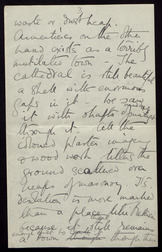 waste or dust heap.
Armentieres on the other
hand exists as a terribly
mutilated town – The
cathedral is still beautiful
a shell with enormous
gaps in it - for
it with shafts of
through it all the
coloured plaster images
& wood work litters the
ground scattered over
heaps of masonry Its
desolation is more marked
than a place like
because of its remains
a town